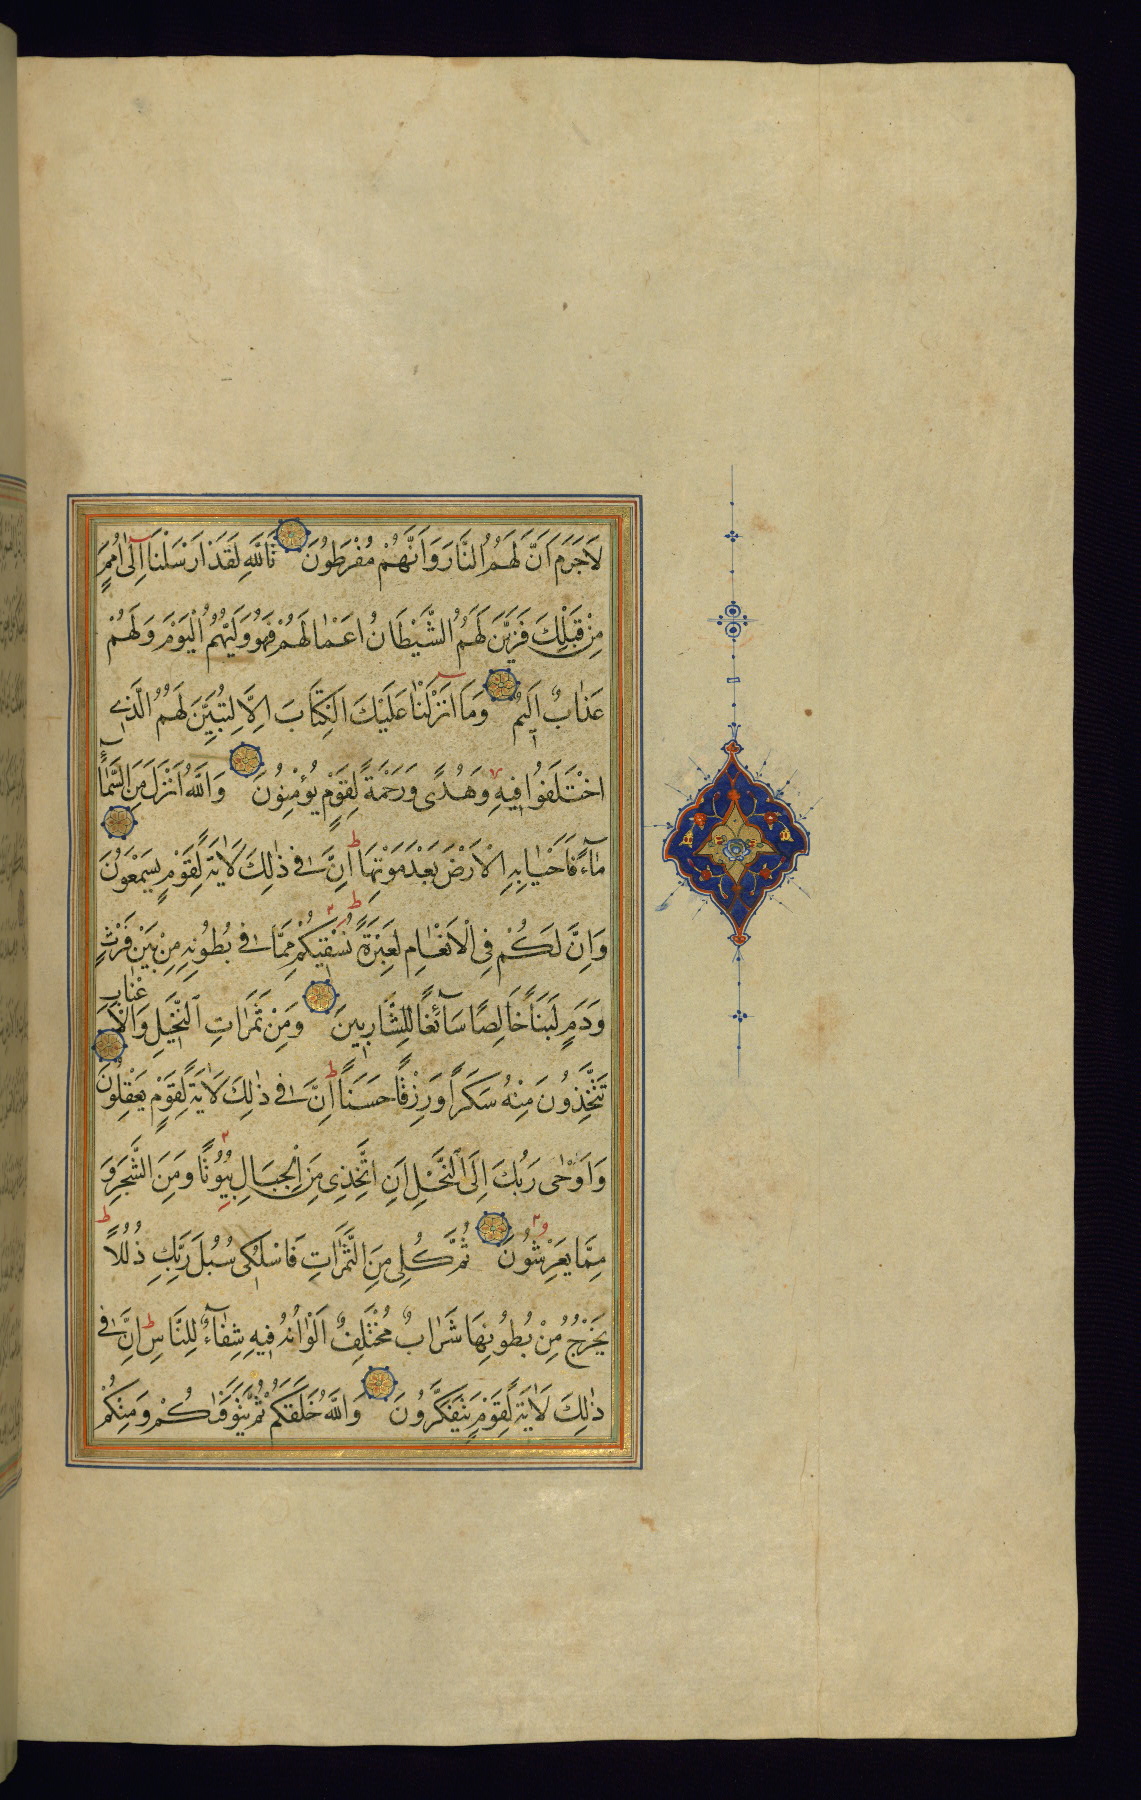 لَاجَرَمَ اَنَّ لَهُمُ النَّارَ وَاَنَّهُمْ مُفْرَطُونَ تَاللّٰهِ لَقَدْ اَرْسَلْنَا اِلٰٓى اُمَمٍ
مِنْ قَبْلِكَ فَزَيَّنَ لَهُمُ الشَّيْطَانُ اَعْمَالَهُمْ فَهُوَ وَلِيُّهُمُ الْيَوْمَ وَلَهُمْ
عَذَابٌ اَلِيمٌ وَمَٓا اَنْزَلْنَا عَلَيْكَ الْكِتَابَ اِلَّا لِتُبَيِّنَ لَهُمُ الَّذِى
اخْتَلَفُوا فِيهِ وَهُدًى وَرَحْمَةً لِقَوْمٍ يُؤْمِنُونَ وَاللّٰهُ اَنْزَلَ مِنَ السَّمَٓاءِ
مَٓاءً فَاَحْيَا بِهِ الْاَرْضَ بَعْدَ مَوْتِهَا اِنَّ فِى ذٰلِكَ لَاٰيَةً لِقَوْمٍ يَسْمَعُونَ
وَاِنَّ لَكُمْ فِى الْاَنْعَامِ لَعِبْرَةً نُسْقِيكُمْ مِمَّا فِى بُطُونِهِ مِنْ بَيْنِ فَرْثٍ
وَدَمٍ لَبَنًا خَالِصًا سَٓائِغًا لِلشَّارِبِينَ وَمِنْ ثَمَرَاتِ النَّخِيلِ وَالْاَعْنَابِ
تَتَّخِذُونَ مِنْهُ سَكَرًا وَرِزْقًا حَسَنًا اِنَّ فِى ذٰلِكَ لَاٰيَةً لِقَوْمٍ يَعْقِلُونَ
وَاَوْحٰى رَبُّكَ اِلَى النَّحْلِ اَنِ اتَّخِذِى مِنَ الْجِبَالِ بُيُوتًا وَمِنَ الشَّجَرِ وَ
مِمَّا يَعْرِشُونَ ثُمَّ كُلِى مِنَ الثَّمَرَاتِ فَاسْلُكِى سُبُلَ رَبِّكِ ذُلُلًا
يَخْرُجُ مِنْ بُطُونِهَا شَرَابٌ مُخْتَلِفٌ اَلْوَانُهُ فِيهِ شِفَٓاءٌ لِلنَّاسِ اِنَّ فِى
ذٰلِكَ لَاٰيَةً لِقَوْمٍ يَتَفَكَّرُونَ وَاللّٰهُ خَلَقَكُمْ ثُمَّ يَتَوَفّٰيكُمْ وَمِنْكُمْ